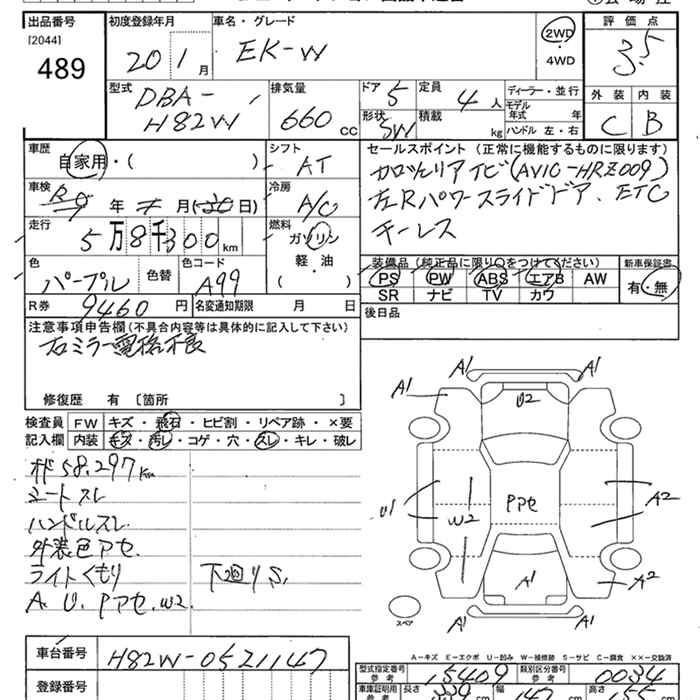 出品番号
[2044]
489
初度登録年月
20 1 月
車名・グレード
EK-W
2WD
・
4WD
評価点
3.5
型式
DBA-
H82W
排気量
660 cc
ドア 5
定員 4 人
形状 SW
積載 kg
ディーラー・並行
モデル
年式 年
ハンドル 左・右
外装 内装
C B
車歴
自家用・( )
シフト
AT
セールスポイント (正常に機能するものに限ります)
カロッツェリアナビ(AVIC-HRZ009)
左Rパワースライドドア、ETC
キーレス
車検
年 月( 日)
冷房
A/C
走行
5万8千300km
燃料
ガソリン
軽・油
( )
色
パープル
色替
色コード
A99
装備品(純正品に限り○をつけてください)
PS PW ABS エアB AW
SR ナビ TV カワ
新車保証書
有・無
R券
9460 円
名変通知期限 月 日
後日品
注意事項申告欄(不具合内容等は具体的に記入して下さい)
右ミラー電格不良
修復歴 有 〔箇所 〕
検査員
記入欄
FW キズ・飛石・ヒビ割・リペア跡・×要
内装 キズ・汚レ・コゲ・穴・スレ・キレ・破レ
58.297km
シートスレ
ハンドルスレ
外装色アセ
ライトくもり
下廻りS
A. U. Pアセ. W2
A1
A1
A1
U2
U1
W2
Pアセ
A2
A2
A1
A1
A1
スペア
A-キズ E-エクボ U-凹み W-補修跡 S-サビ C-腐食 ××-交換済
車台番号
H82W-0521147
登録番号
型式指定番号
参考
15409
類別区分番号
参考
0034
車庫証明用
参考
長さ 339 cm
幅 147 cm
高さ 155 cm